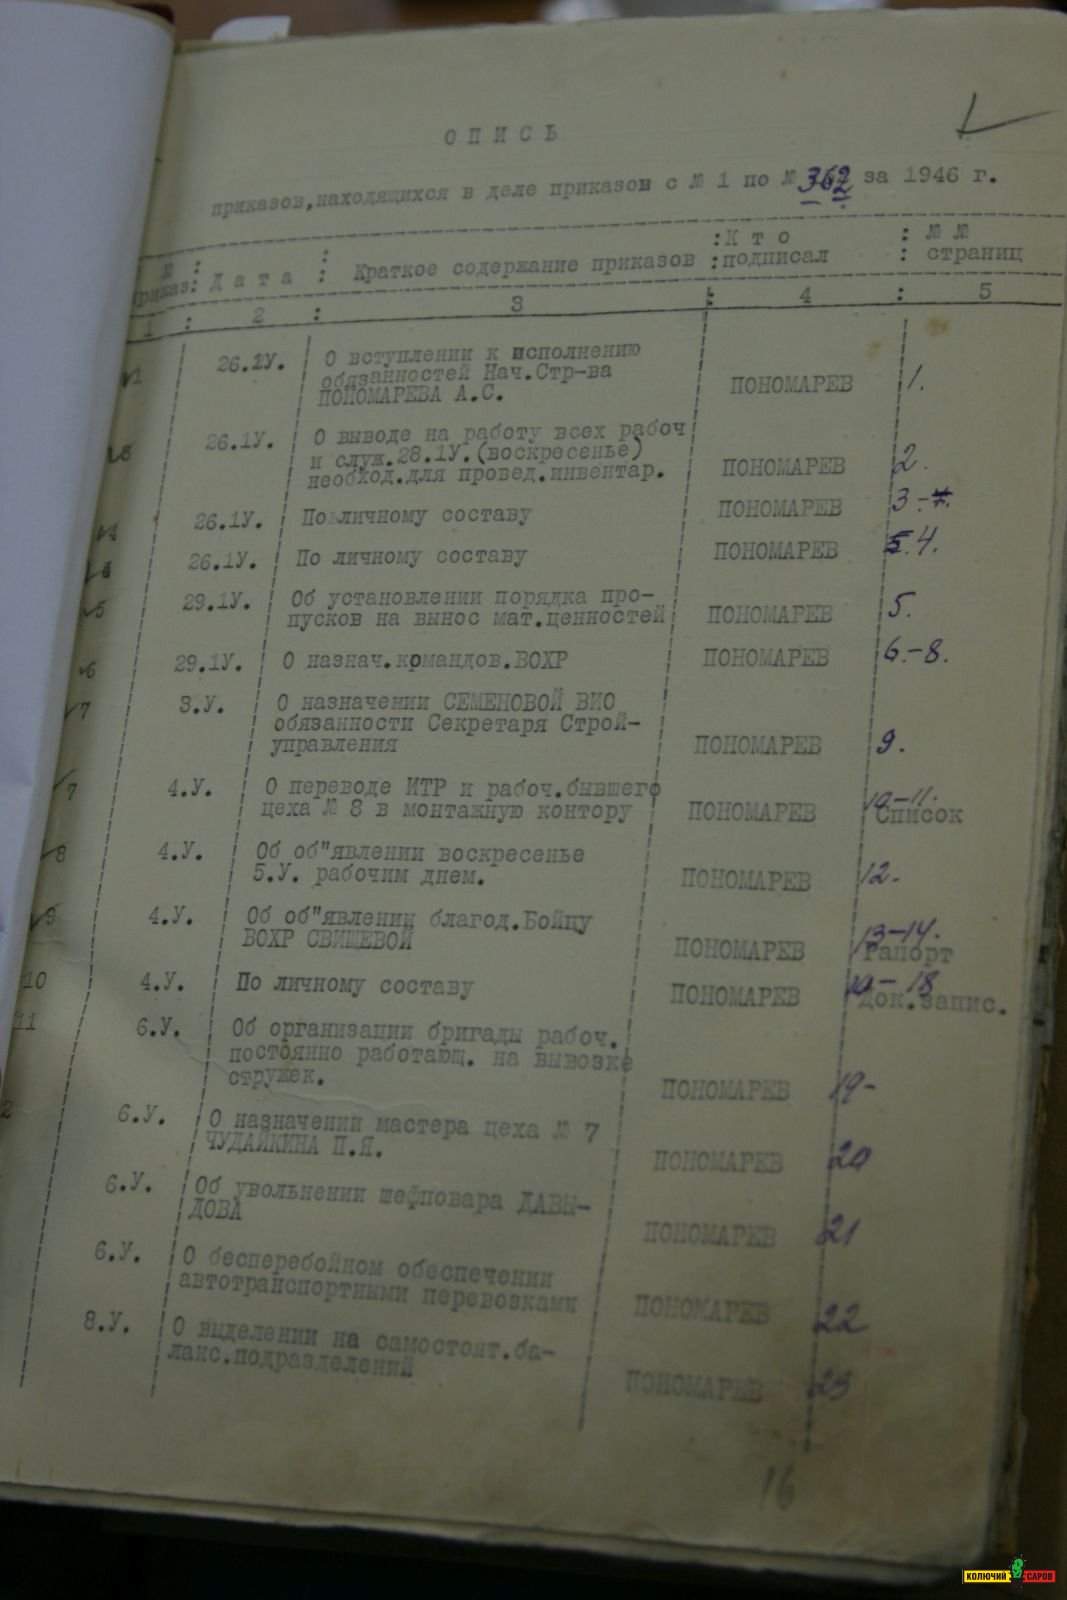 ОПИСЬ
приказов, находящихся в деле приказов с № 1 по № 362 за 1946 г.
№ приказ : Дата : Краткое содержание приказов : Кто подписал : №№ страниц
1 : 2 : 3 : 4 : 5
1 26.1У. О вступлении к исполнению
обязанностей Нач.Стр-ва
ПОНОМАРЕВА А.С. ПОНОМАРЕВ 1.
26.1У. О выводе на работу всех рабоч
и служ.28.1У.(воскресенье)
необход.для провед.инвентар. ПОНОМАРЕВ 2.
26.1У. По личному составу ПОНОМАРЕВ 3.-
4 26.1У. По личному составу ПОНОМАРЕВ 4.
5 29.1У. Об установлении порядка про-
пусков на вынос мат.ценностей ПОНОМАРЕВ 5.
6 29.1У. О назнач.командов.ВОХР ПОНОМАРЕВ 6.-8.
7 3.У. О назначении СЕМЕНОВОЙ ВИО
обязанности Секретаря Строй-
управления ПОНОМАРЕВ 9.
7 4.У. О переводе ИТР и рабоч.бывшего
цеха № 8 в монтажную контору ПОНОМАРЕВ 10-11. Список
8 4.У. Об об"явлении воскресенье
5.У. рабочим днем. ПОНОМАРЕВ 12-
9 4.У. Об об"явлении благод.Бойцу
ВОХР СВИЩЕВОЙ ПОНОМАРЕВ 13-14. Рапорт
10 4.У. По личному составу ПОНОМАРЕВ 18 Док.запис.
11 6.У. Об организации бригады рабоч.
постоянно работающ. на вывозке
стружек. ПОНОМАРЕВ 19-
2 6.У. О назначении мастера цеха № 7
ЧУДАЙКИНА П.Я. ПОНОМАРЕВ 20
6.У. Об увольнении шефповара ДАВЫ-
ДОВА ПОНОМАРЕВ 21
6.У. О бесперебойном обеспечении
автотранспортными перевозками ПОНОМАРЕВ 22
8.У. О выделении на самостоят.ба-
ланс.подразделений ПОНОМАРЕВ 23
16
КОЛЮЧИЙ САРОВ